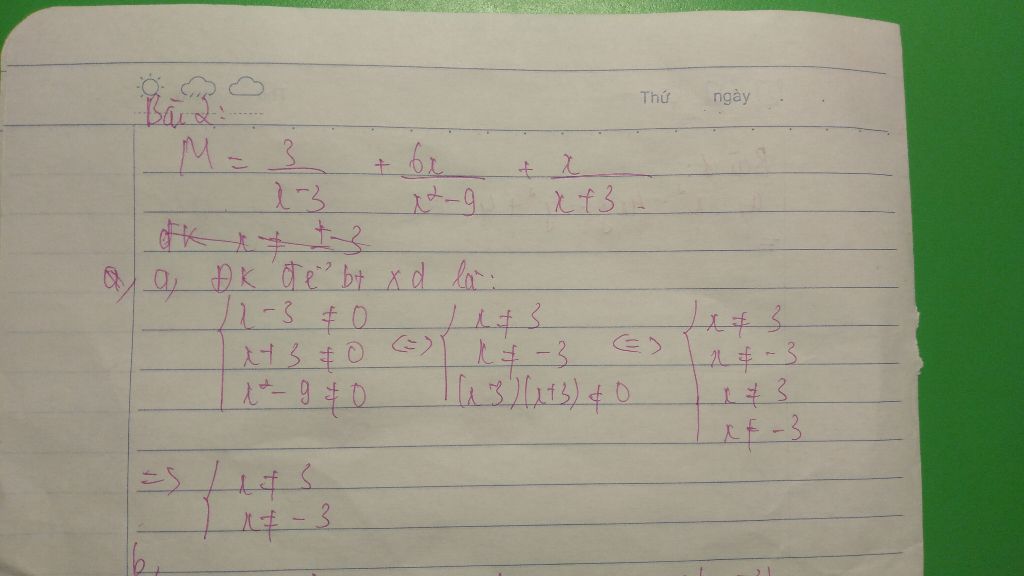 Thứ ngày
Bài 2:
M = 3/(x-3) + 6x/(x²-9) + x/(x+3)
đk x ≠ ± 3
a, a, ĐK để bt xd là:
{ x-3 ≠ 0 <=> { x ≠ 3 <=> { x ≠ 3
x+3 ≠ 0 x ≠ -3 x ≠ -3
x²-9 ≠ 0 (x-3)(x+3) ≠ 0 x ≠ 3
x ≠ -3
=> { x ≠ 3
x ≠ -3
b,